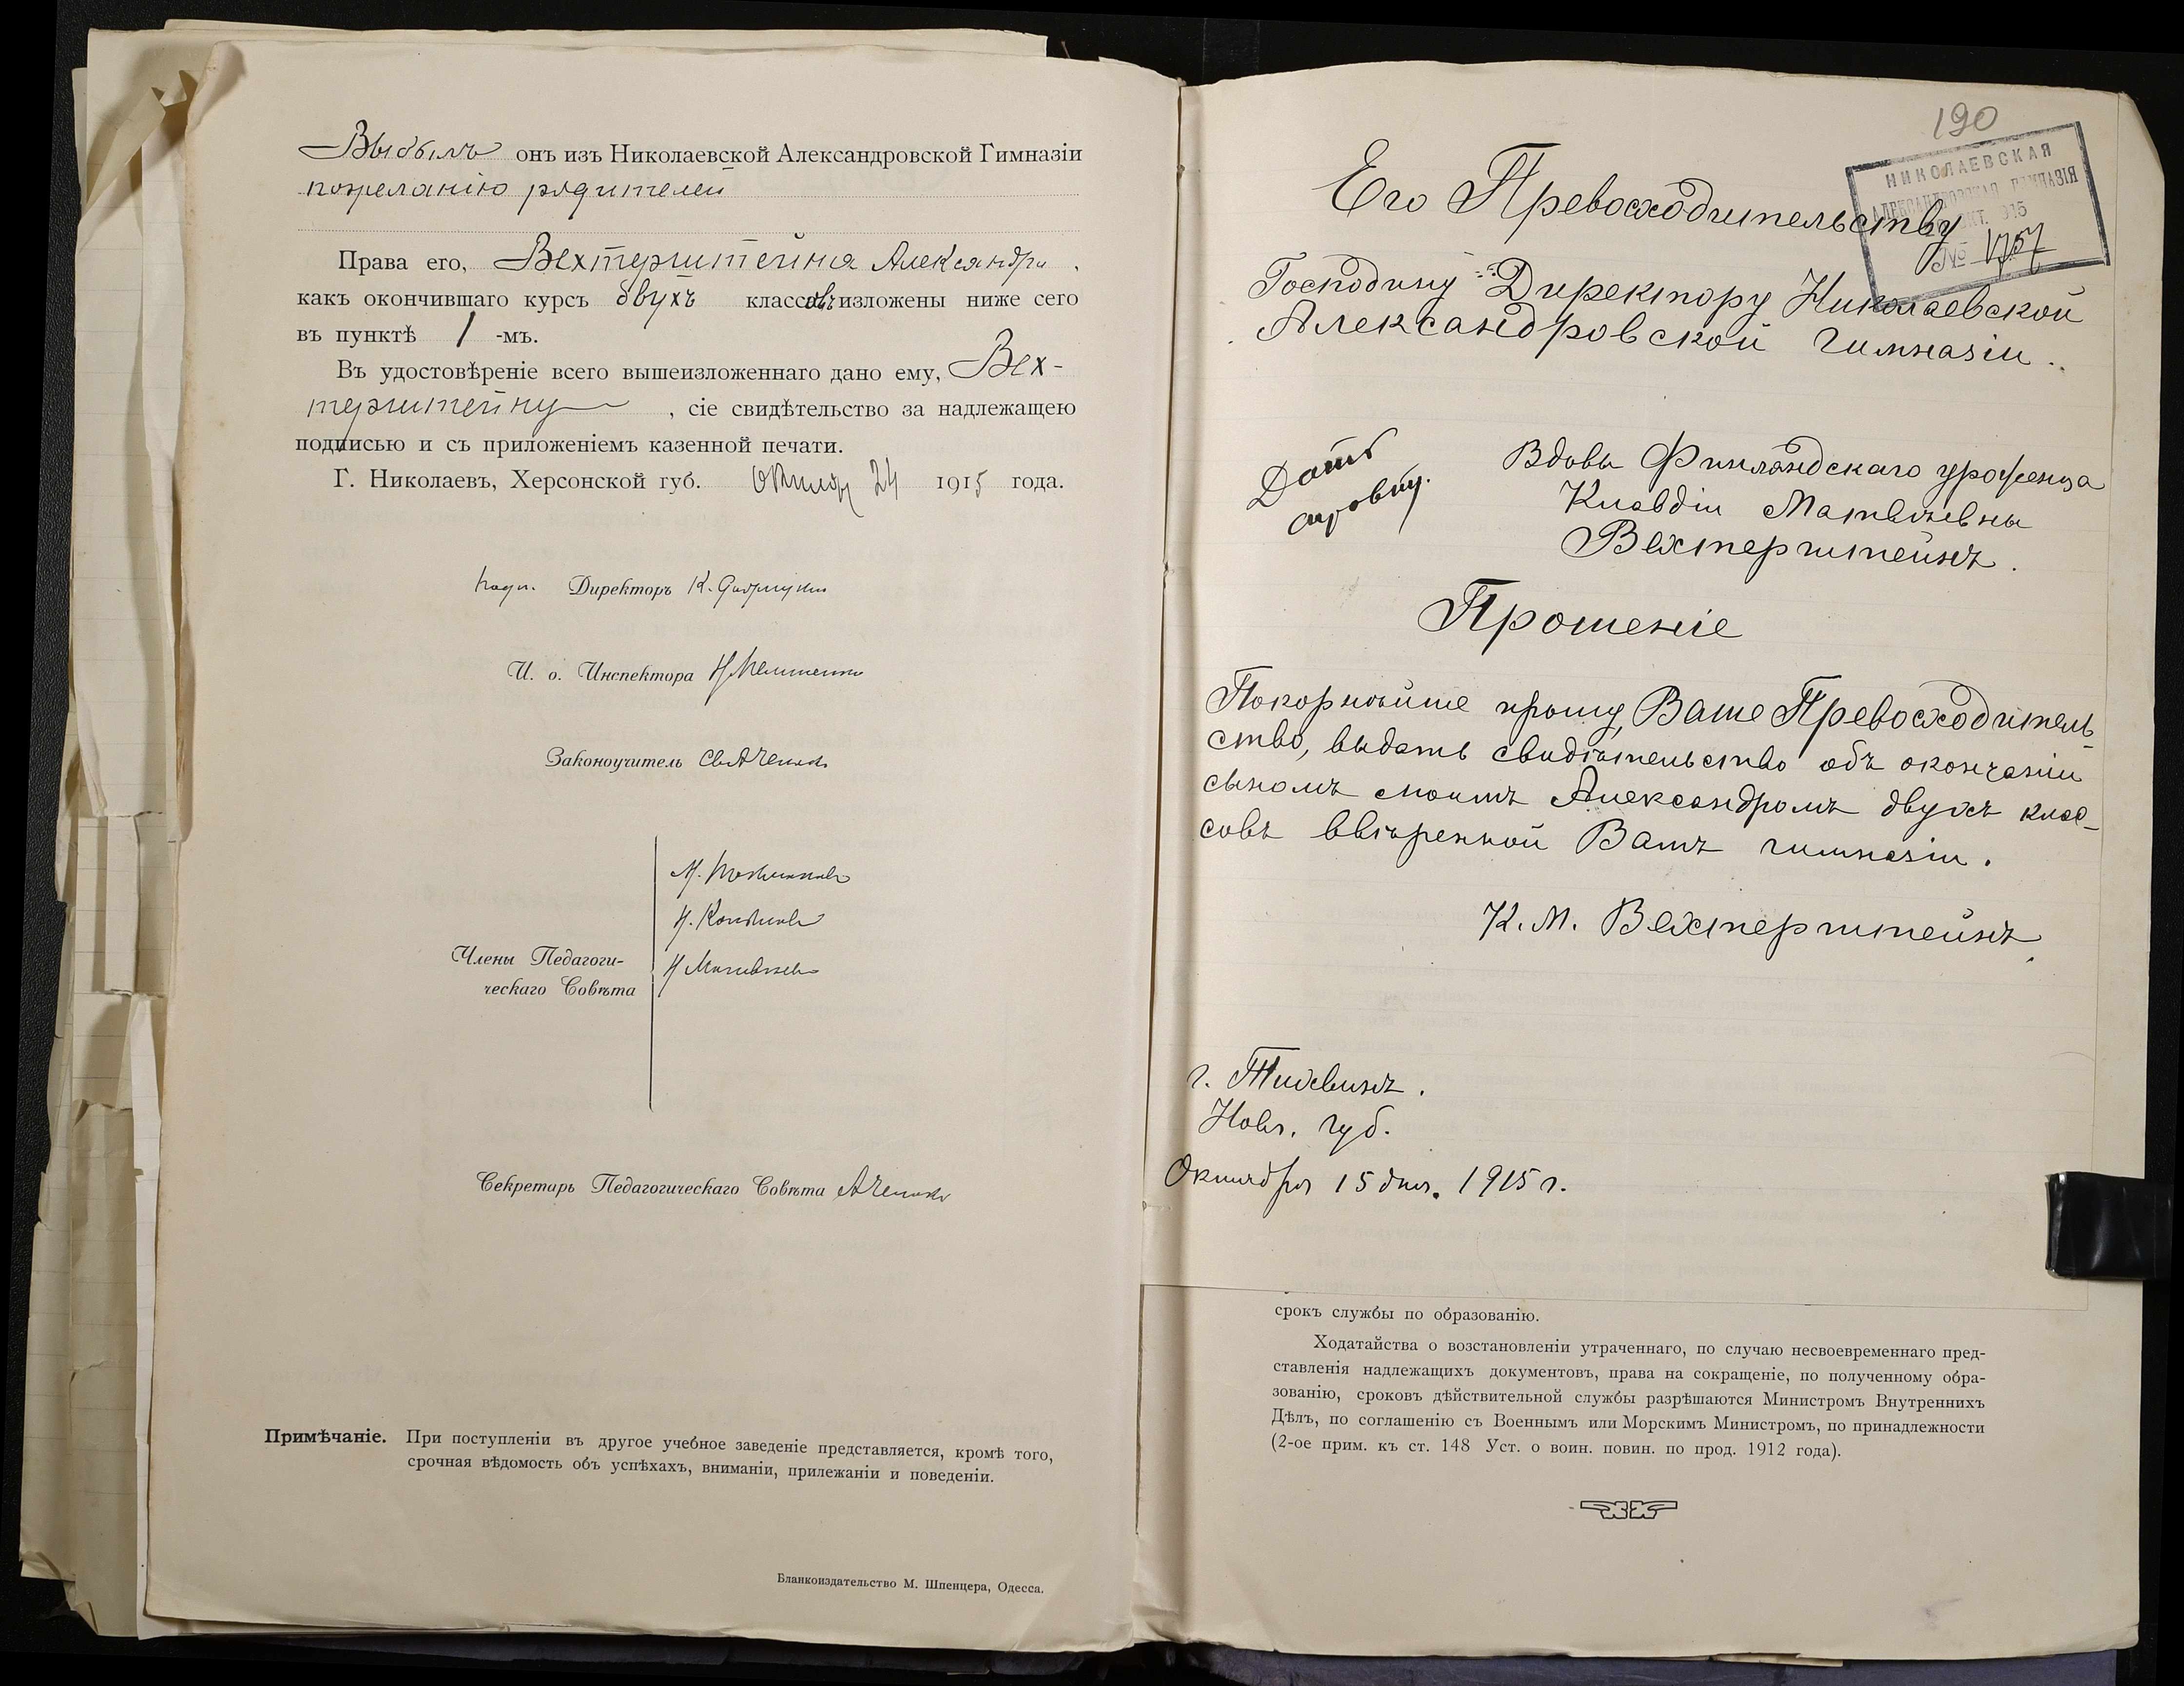 Выбылъ онъ изъ Николаевской Александровской Гимназіи
по желанію родителей
Права его, Вехтерштейна Александра,
какъ окончившаго курсъ двухъ классовъ изложены ниже сего
въ пунктѣ 1 -мъ.
Въ удостовѣреніе всего вышеизложеннаго дано ему, Вех-
терштейну, сіе свидѣтельство за надлежащею
подписью и съ приложеніемъ казенной печати.
Г. Николаевъ, Херсонской губ. Октября 24 1915 года.
Подп. Директоръ К.
И. о. Инспектора
Законоучитель
Члены Педагоги-
ческаго Совѣта
Секретарь Педагогическаго Совѣта
Примѣчаніе. При поступленіи въ другое учебное заведеніе представляется, кромѣ того,
срочная вѣдомость объ успѣхахъ, вниманіи, прилежаніи и поведеніи.
Бланкоиздательство М. Шпенцера, Одесса.
190
НИКОЛАЕВСКАЯ
АЛЕКСАНДРОВСКАЯ ГИМНАЗІЯ
ОКТ. 915
№ 1757
Его Превосходительству
Господину Директору Николаевской
Александровской гимназіи.
Дать
справку.
Вдовы Финляндскаго уроженца
Клавдіи Матвѣевны
Вехтерштейнъ.
Прошеніе
Покорнѣйше прошу, Ваше Превосходитель-
ство, выдать свидѣтельство объ окончаніи
сыномъ моимъ Александромъ двухъ клас-
совъ ввѣренной Вамъ гимназіи.
К. М. Вехтерштейнъ.
г. Тихвинъ.
Новг. губ.
Октября 15 дня. 1915 г.
срокъ службы по образованію.
Ходатайства о возстановленіи утраченнаго, по случаю несвоевременнаго пред-
ставленія надлежащихъ документовъ, права на сокращеніе, по полученному обра-
зованію, сроковъ дѣйствительной службы разрѣшаются Министромъ Внутреннихъ
Дѣлъ, по соглашенію съ Военнымъ или Морскимъ Министромъ, по принадлежности
(2-ое прим. къ ст. 148 Уст. о воин. повин. по прод. 1912 года).